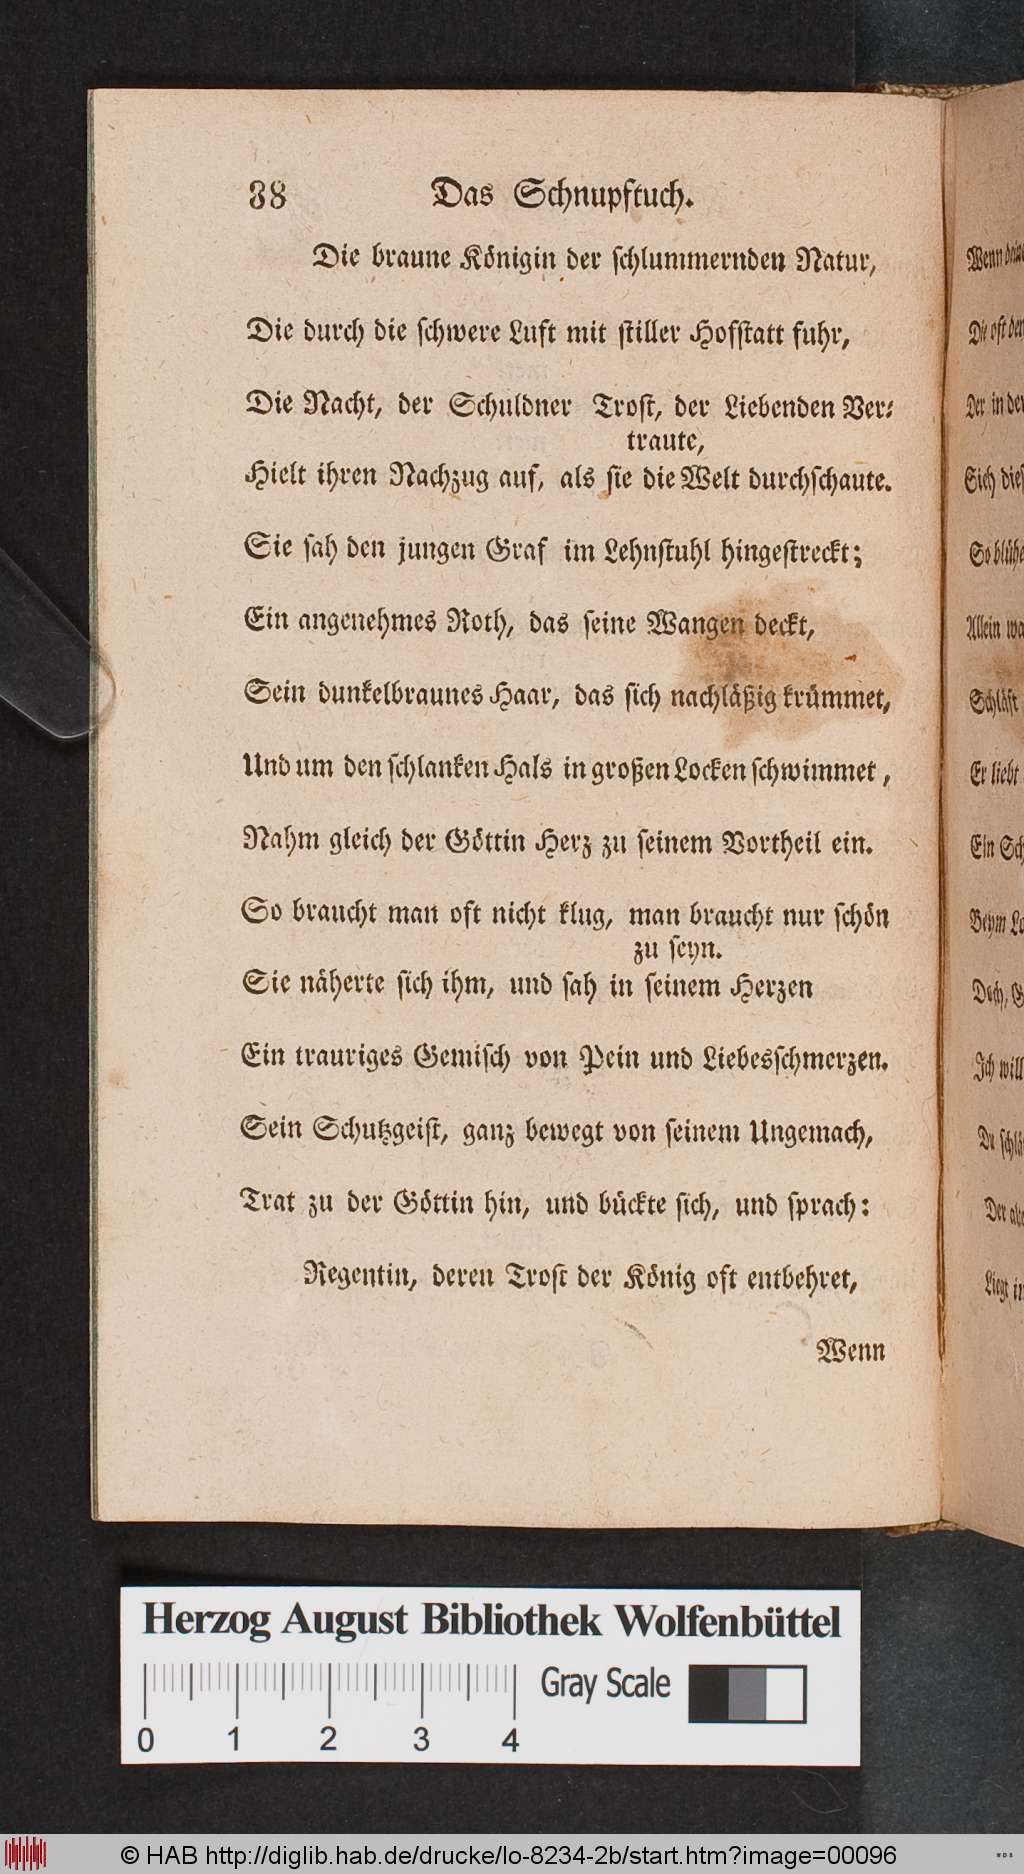 38 Das Schnupftuch.
Die braune Königin der schlummernden Natur,
Die durch die schwere Luft mit stiller Hofstatt fuhr,
Die Nacht, der Schuldner Trost, der Liebenden Ver⸗
traute,
Hielt ihren Nachzug auf, als sie die Welt durchschaute.
Sie sah den jungen Graf im Lehnstuhl hingestreckt;
Ein angenehmes Roth, das seine Wangen deckt,
Sein dunkelbraunes Haar, das sich nachläßig krümmet,
Und um den schlanken Hals in großen Locken schwimmet,
Nahm gleich der Göttin Herz zu seinem Vortheil ein.
So braucht man oft nicht klug, man braucht nur schön
zu seyn.
Sie näherte sich ihm, und sah in seinem Herzen
Ein trauriges Gemisch von Pein und Liebesschmerzen.
Sein Schutzgeist, ganz bewegt von seinem Ungemach,
Trat zu der Göttin hin, und bückte sich, und sprach:
Regentin, deren Trost der König oft entbehret,
Wenn
Wenn
Die oft der
Der in der
Sieh
So
Allein
Schläft
Er liebt
Ein
Beym
Doch,
Ich will
Du
Der
Liegt
Herzog August Bibliothek Wolfenbüttel
Gray Scale
0 1 2 3 4
© HAB http://diglib.hab.de/drucke/lo-8234-2b/start.htm?image=00096